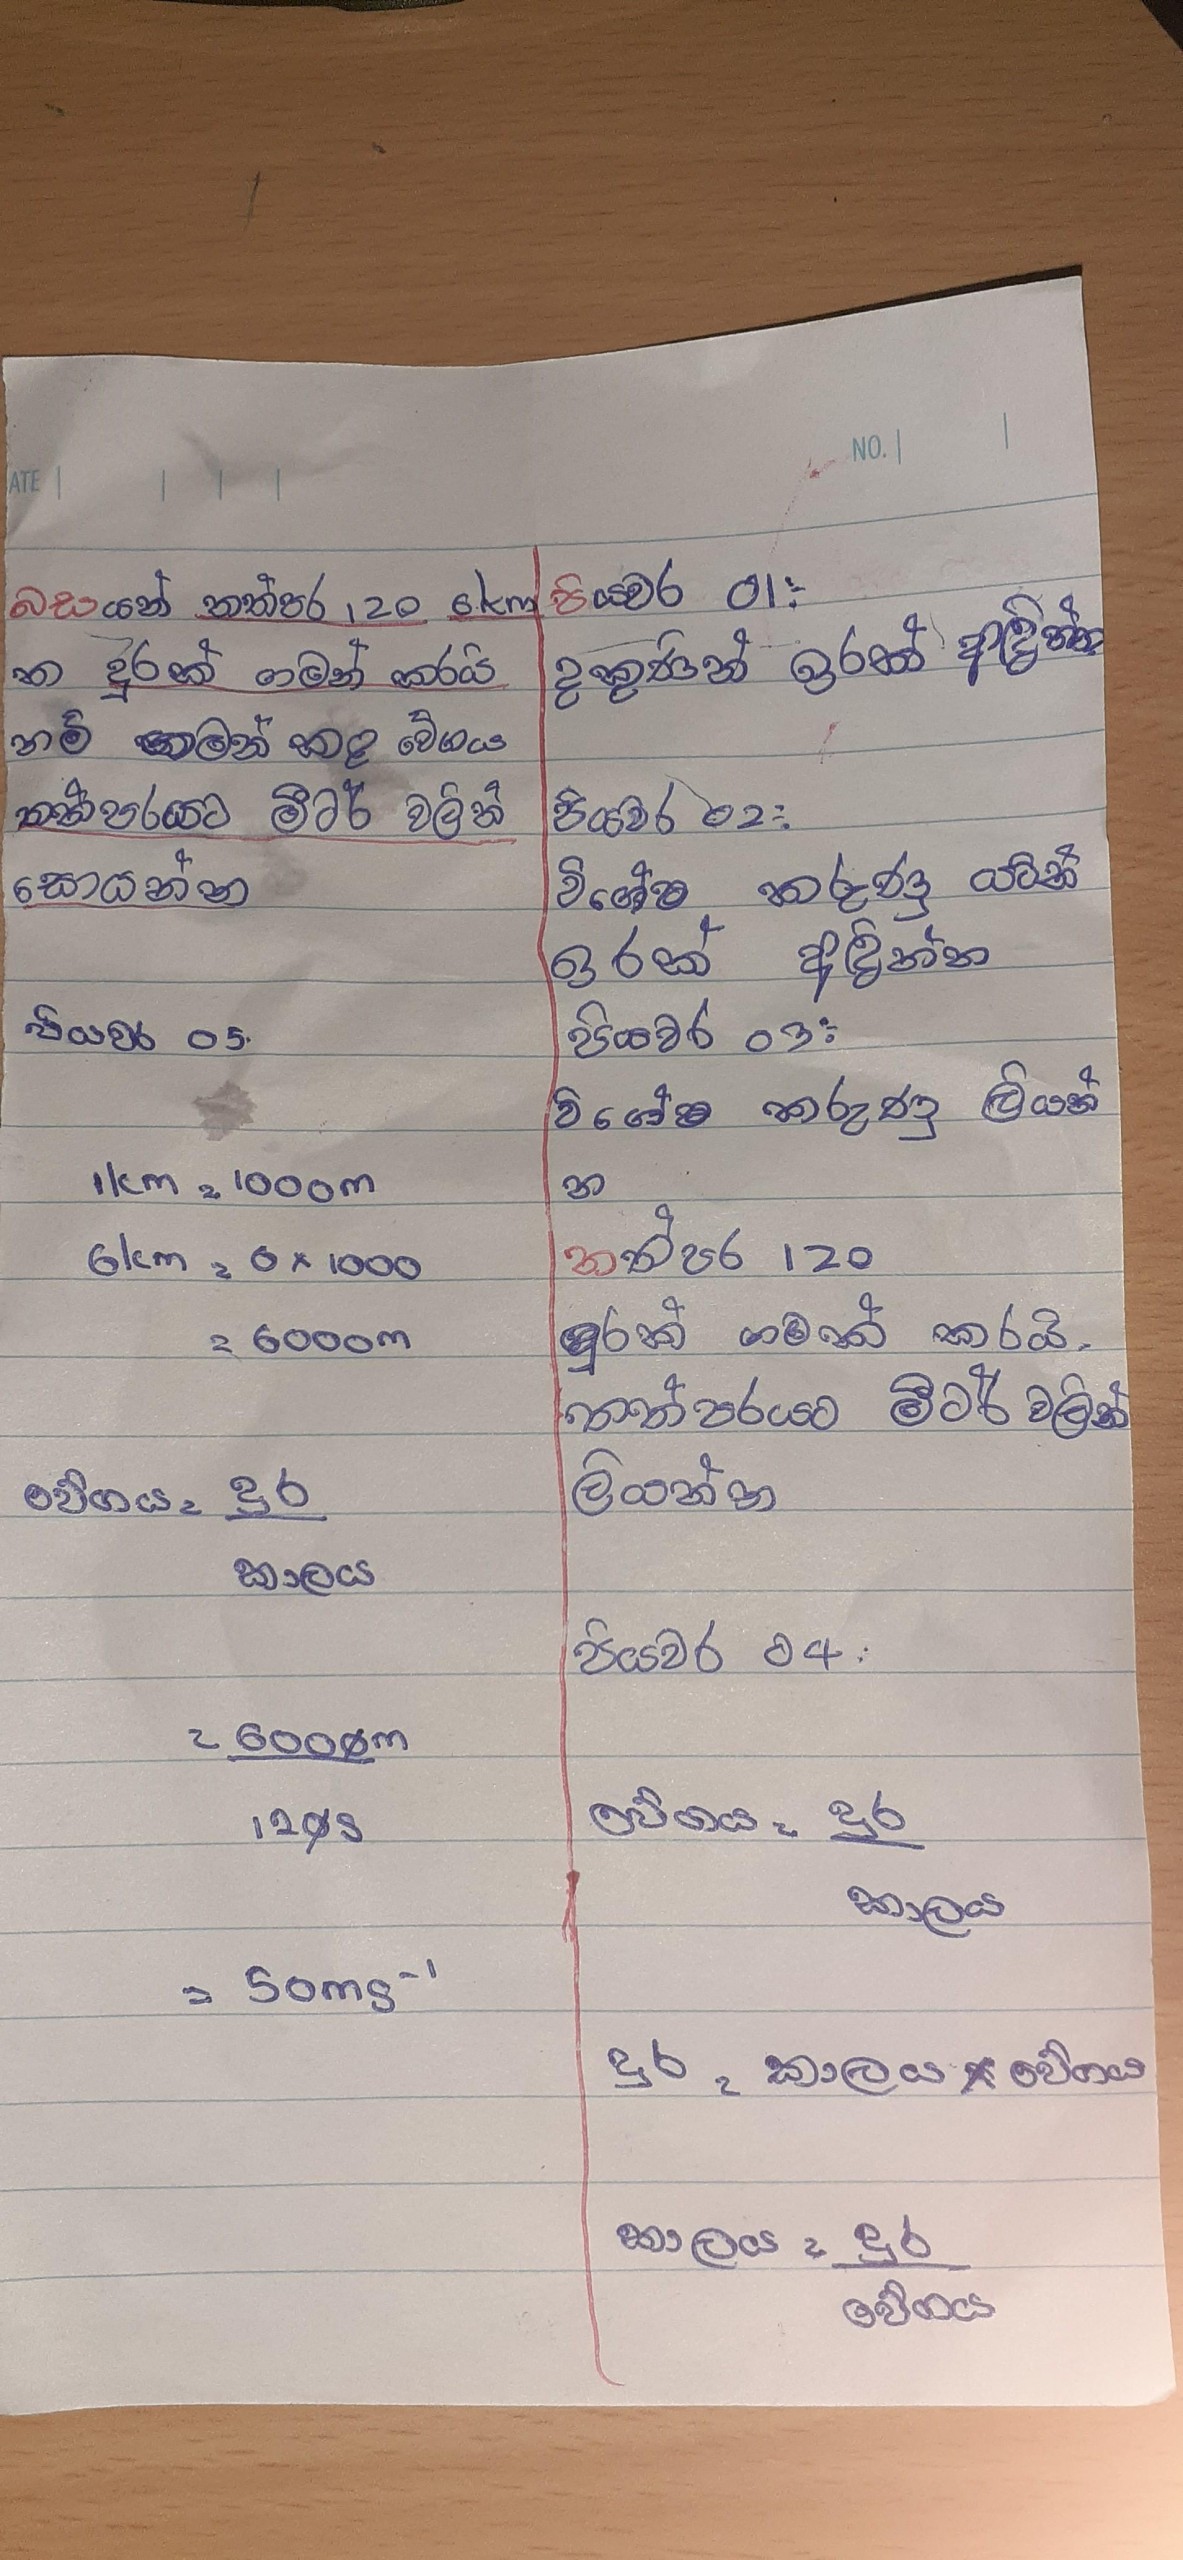 ATE
NO.
බසයක් තත්පර 120 6km
ක දුරක් ගමන් කරයි
නම් ගමන් කළ වේගය
තත්පරයට මීටර් වලින්
සොයන්න
පියවර 05.
1km = 1000m
6km = 6 × 1000
= 6000m
වේගය = දුර
කාලය
= 6000m
120s
= 50ms⁻¹
පියවර 01:
දකුණින් ඉරක් අඳින්න
පියවර 02:
විශේෂ කරුණු යටින්
ඉරක් අඳින්න
පියවර 03:
විශේෂ කරුණු ලියන්
න
තත්පර 120
දුරක් ගමන් කරයි.
තත්පරයට මීටර් වලින්
ලියන්න
පියවර 04:
වේගය = දුර
කාලය
දුර = කාලය × වේගය
කාලය = දුර
වේගය